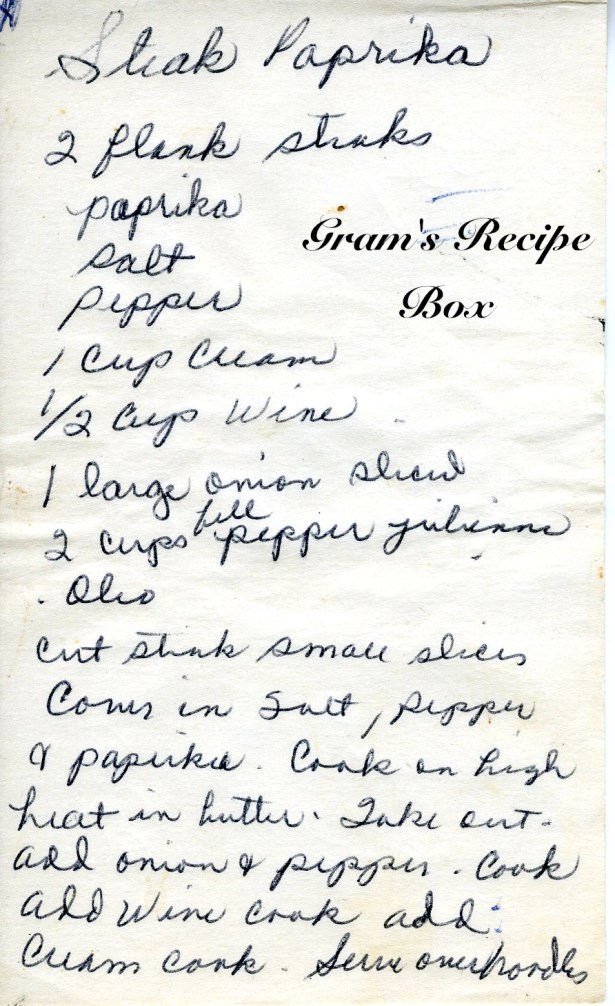 Steak Paprika
2 flank steaks
paprika
Salt
Pepper
Gram's Recipe
Box
1 Cup Cream
1/2 Cup Wine
1 large onion sliced
2 cups bell pepper julienne
Oleo
Cut steak small slices
Cover in Salt, Pepper
& paprika. Cook on high
heat in butter. Take out.
Add onion & pepper. Cook
Add Wine cook add
Cream cook. Serve over noodles